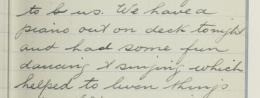 to be us. We have a
piano out on deck tonight
and had some fun
dancing & singing which
helped to liven things